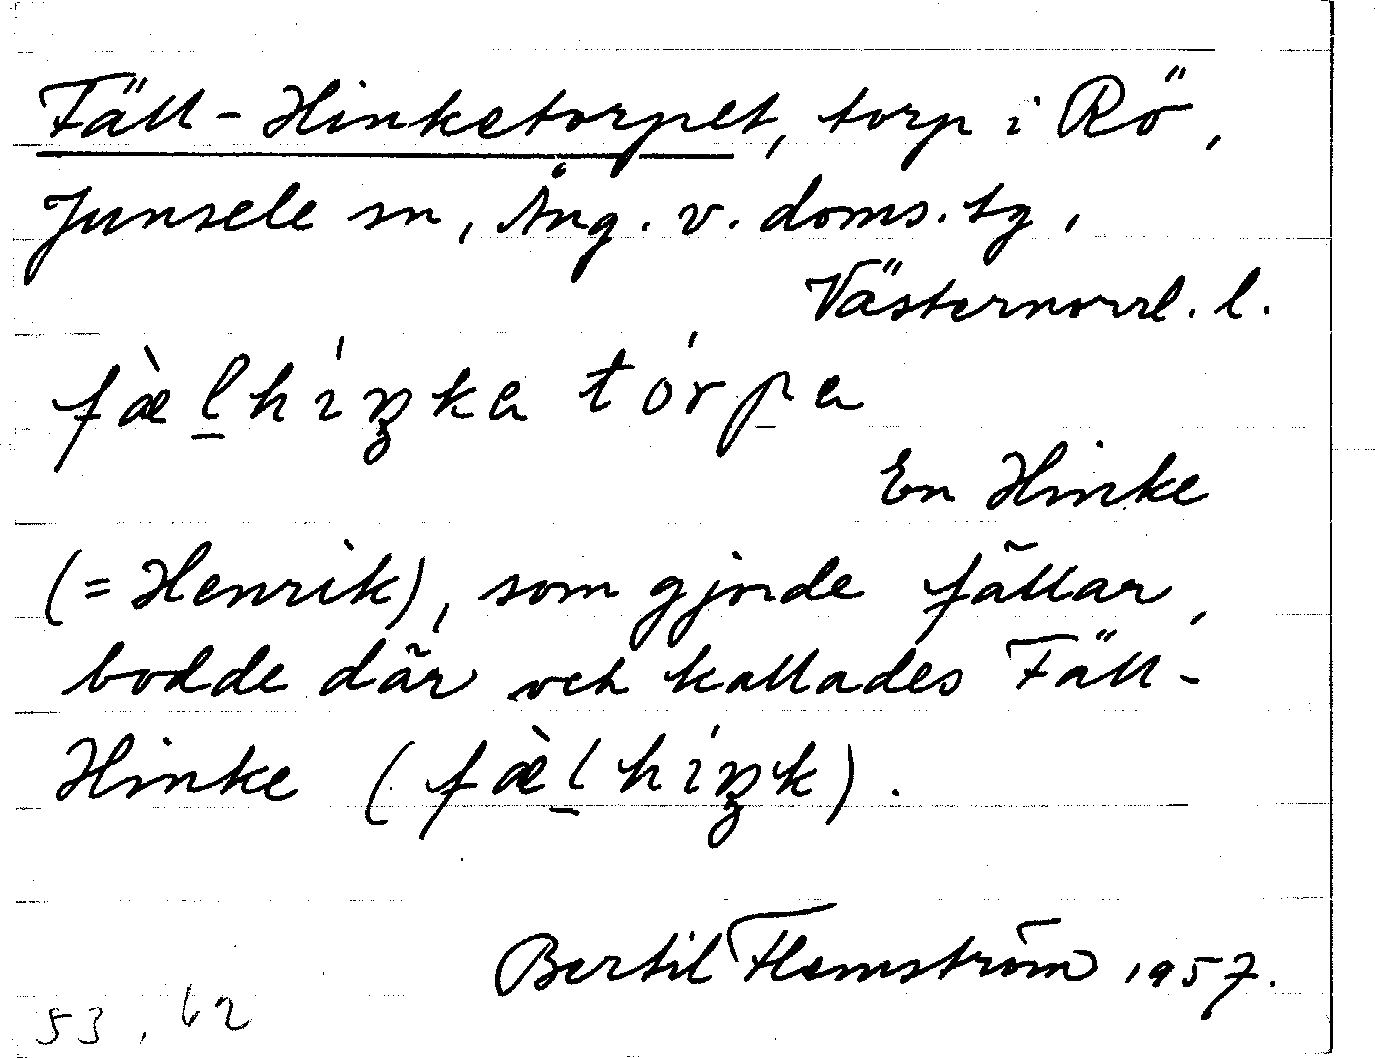 Fäll-Hinketorpet, torp i Rö,
Junsele sn, Ång. v. doms. tg,
Västernorrl. l.
fæ̀l̠híŋka tórpa
En Hinke
(= Henrik), som gjorde fällar,
bodde där och kallades Fäll-
Hinke (fæ̀l̠híŋk).
Bertil Flemström 1957.
53, 62